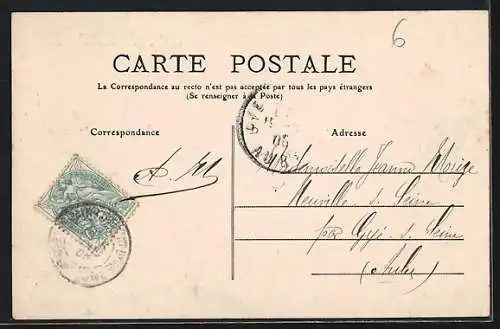 6
CARTE POSTALE
La Correspondance au recto n'est pas acceptée par tous les pays étrangers
(Se renseigner à la Poste)
Correspondance
Adresse
A. M
Mademoiselle Jeanne
Neuville s. Seine
par Gyé s. Seine
(Aube)